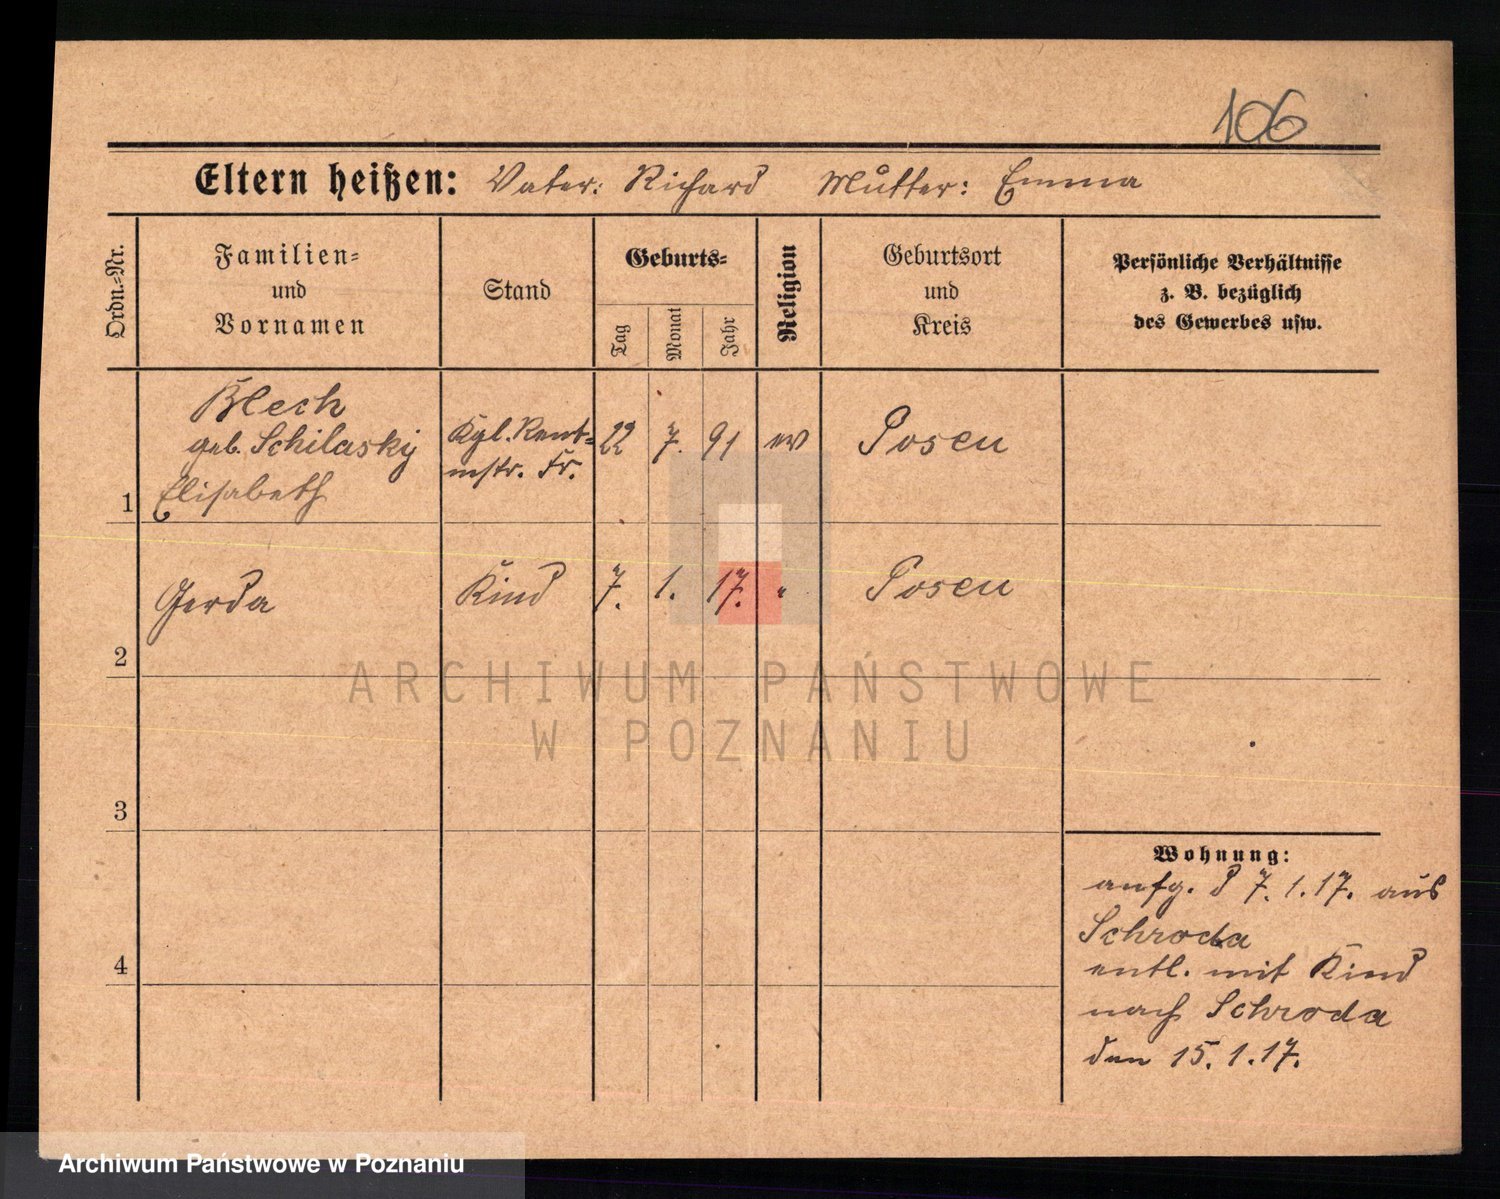 106
Eltern heißen: Vater: Richard Mutter: Emma
Ordn.-Nr.
Familien-
und
Vornamen
Stand
Geburts-
Tag
Monat
Jahr
Religion
Geburtsort
und
Kreis
Persönliche Verhältnisse
z. B. bezüglich
des Gewerbes usw.
1
Blech
geb. Schilasky
Elisabeth
Kgl. Rent-
mstr. Fr.
22 7. 91 ev Posen
2
Gerda Kind 7. 1. 17. " Posen
3
4
Wohnung:
aufg. d 7.1.17. aus
Schroda
entl. mit Kind
nach Schroda
den 15.1.17.
ARCHIWUM PAŃSTWOWE
W POZNANIU
Archiwum Państwowe w Poznaniu